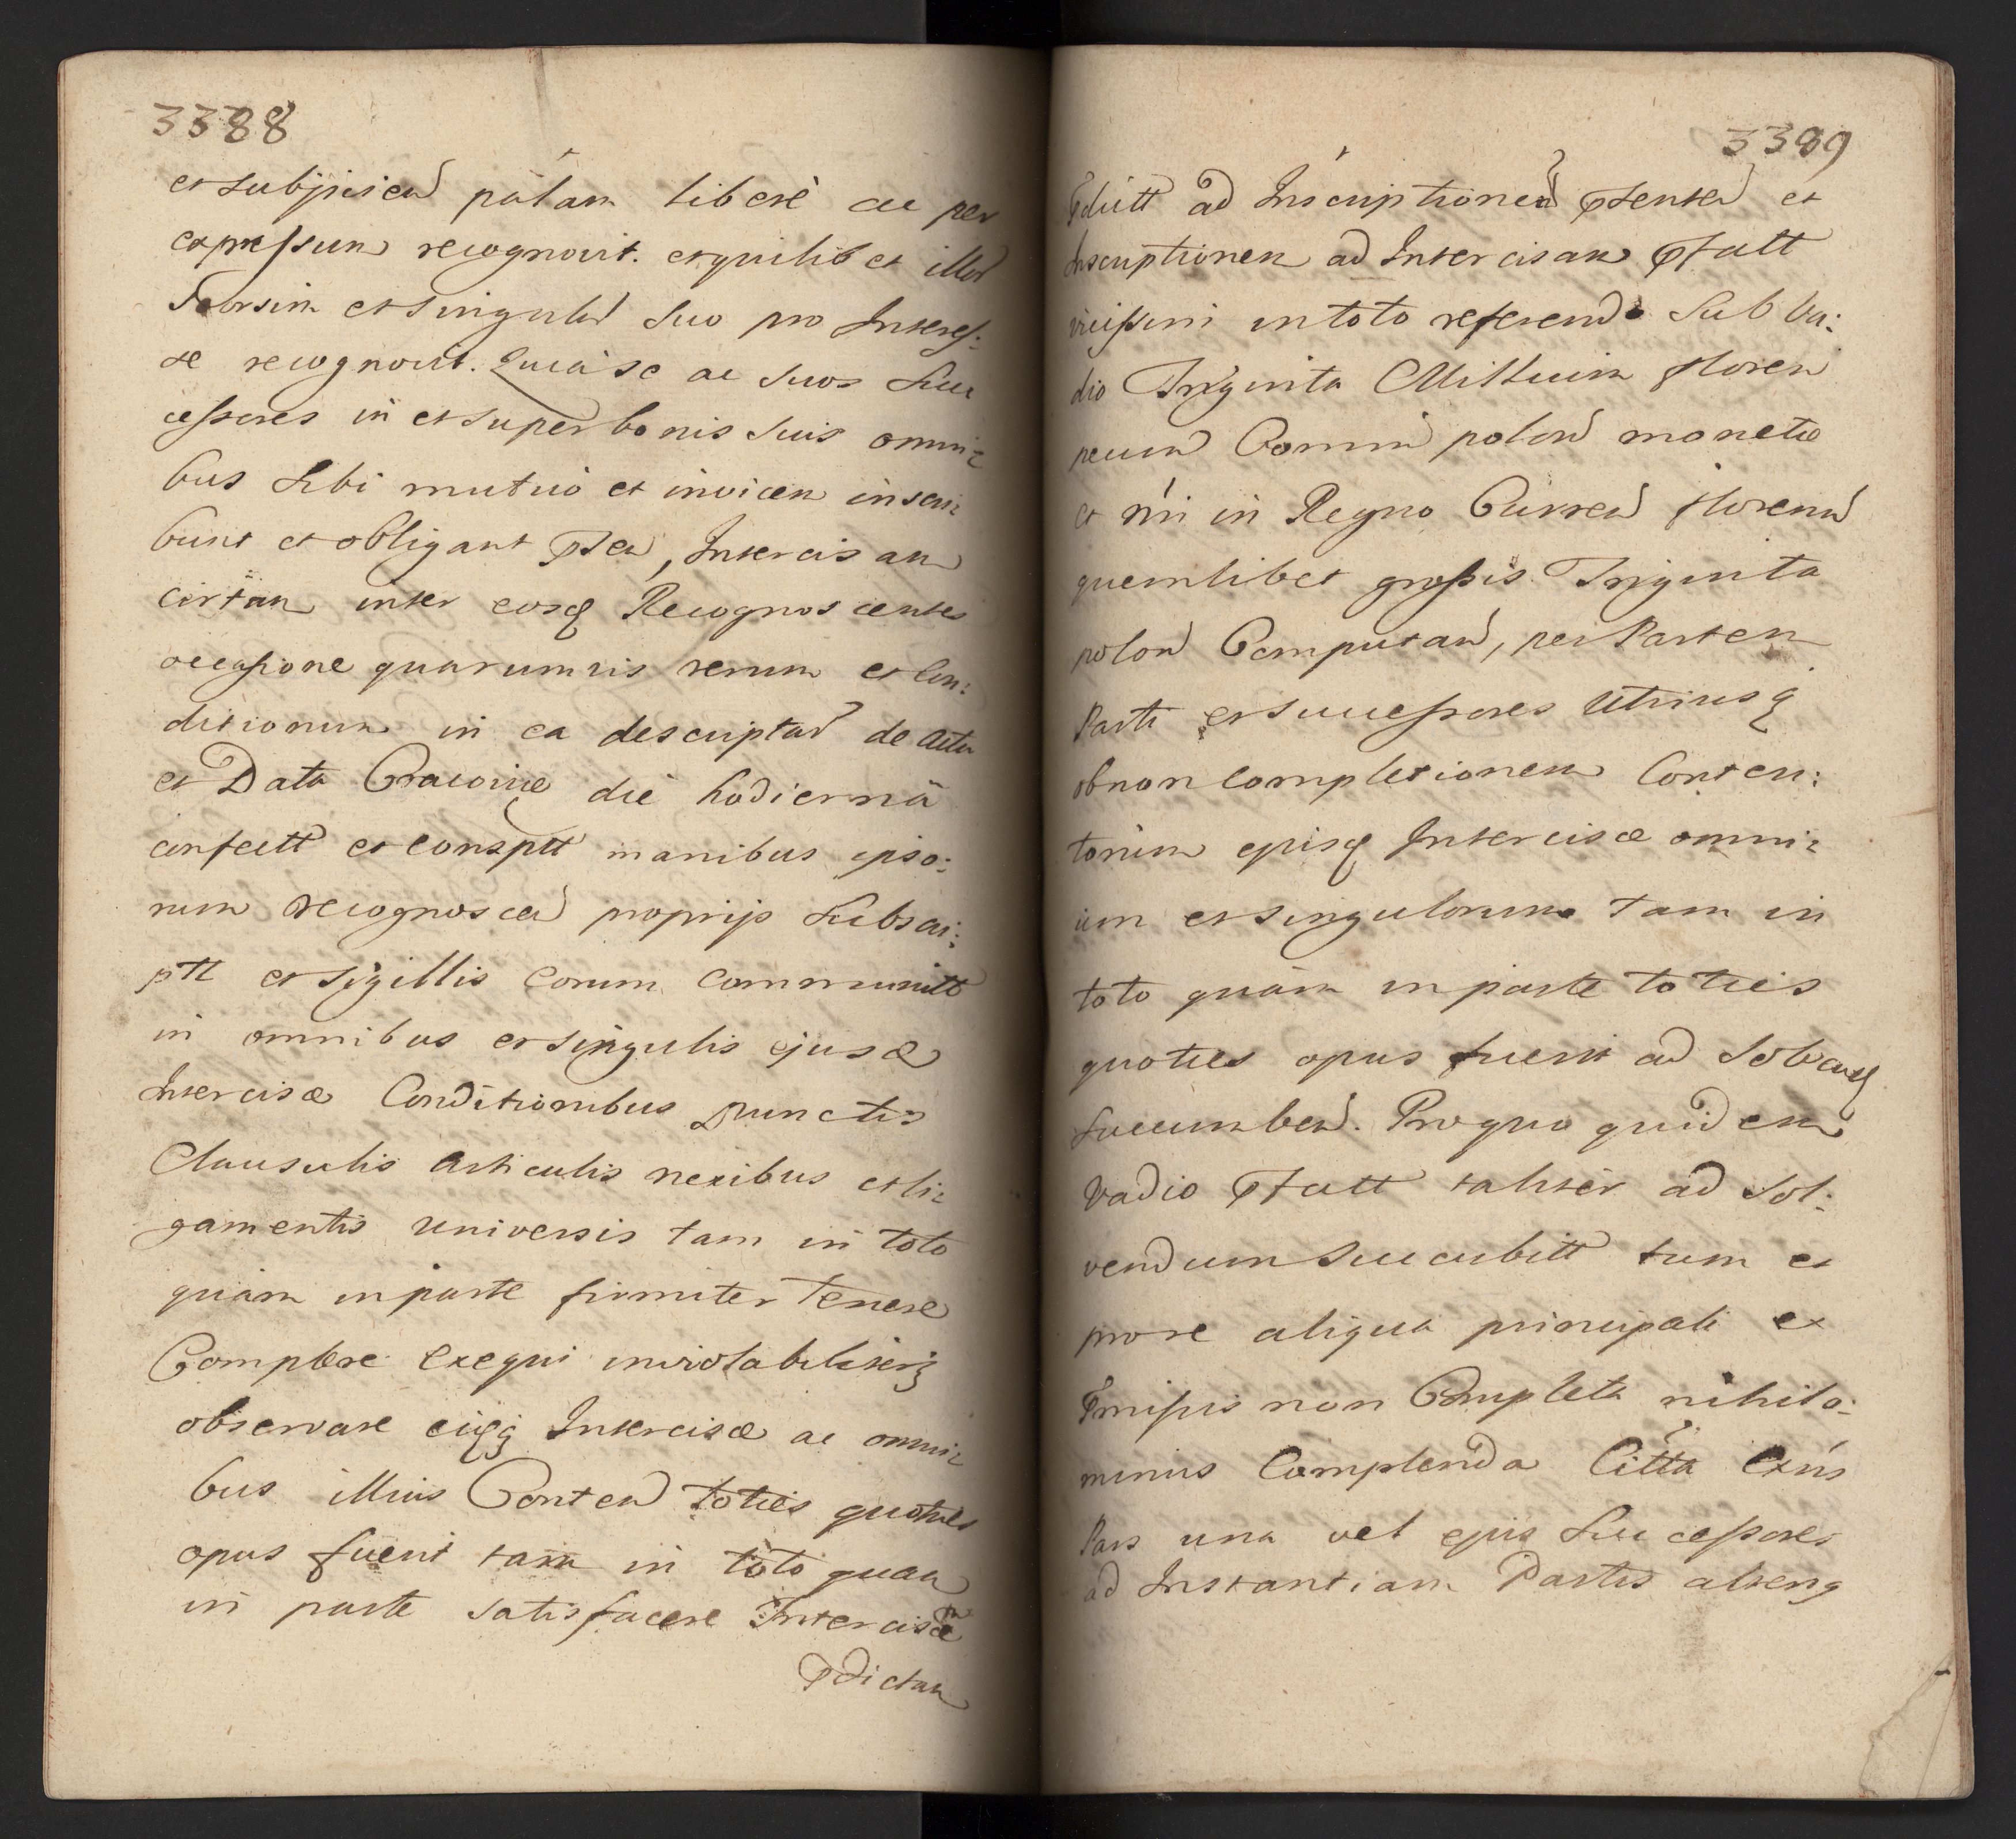 3388
et subjicien palam libere ac per
expressum recognovit. et quilibet illor
Seorsim et singular suo pro Interes:
se recognovit. Quia se ac suos Suc
cessores in et super bonis suis omni:
bus sibi mutuo et invicem inscri:
bunt et obligant Psen, Intercisam
certam inter eosq Recognoscentes
occasione quarumvis rerum et Con:
ditionum in ea descriptar de actu
et Data Cracoviæ die hodierna
confectt et consptt manibus ipso:
rum recognoscen proprijs Subscri:
ptt et sigillis eorum communitt
in omnibus et singulis ejusd
Intercisæ Conditionibus punctis
Clausulis Articulis nexibus et li:
gamentis universis tam in toto
quam in parte firmiter Tenere
Complere exequi inviolabiliterq
observare eiqq Intercisæ ac omni:
bus illius Conten toties quoties
opus fuerit tam in toto quam
in parte satisfacere Intercisæ
Pdictam
3389
Pdictt ad Inscriptionem Psentem et
Inscriptionem ad Intercisam Pfatt
vicissim in toto referendo Sub va:
dio Triginta Millium floren
pecun Comm polon monetæ
et nri in Regno Curren florenum
quemlibet grossis Triginta
polon Computan, per Partem
Parti et successores Utriusq
ob non completionem Conten:
torum ejusq Intercisæ omni:
um et singulorum tam in
toto quam in parte toties
quoties opus fuerit ad Solvenq
succumben. Pro quo quidem
Vadio Pfatt taliter ad Sol:
vendum succubitt tum et
pro re aliqua principali ex
Pmissis non Completa nihilo:
minus Complenda Citta Exns
Pars una vel ejus Successores
ad Instantiam Partis alterius